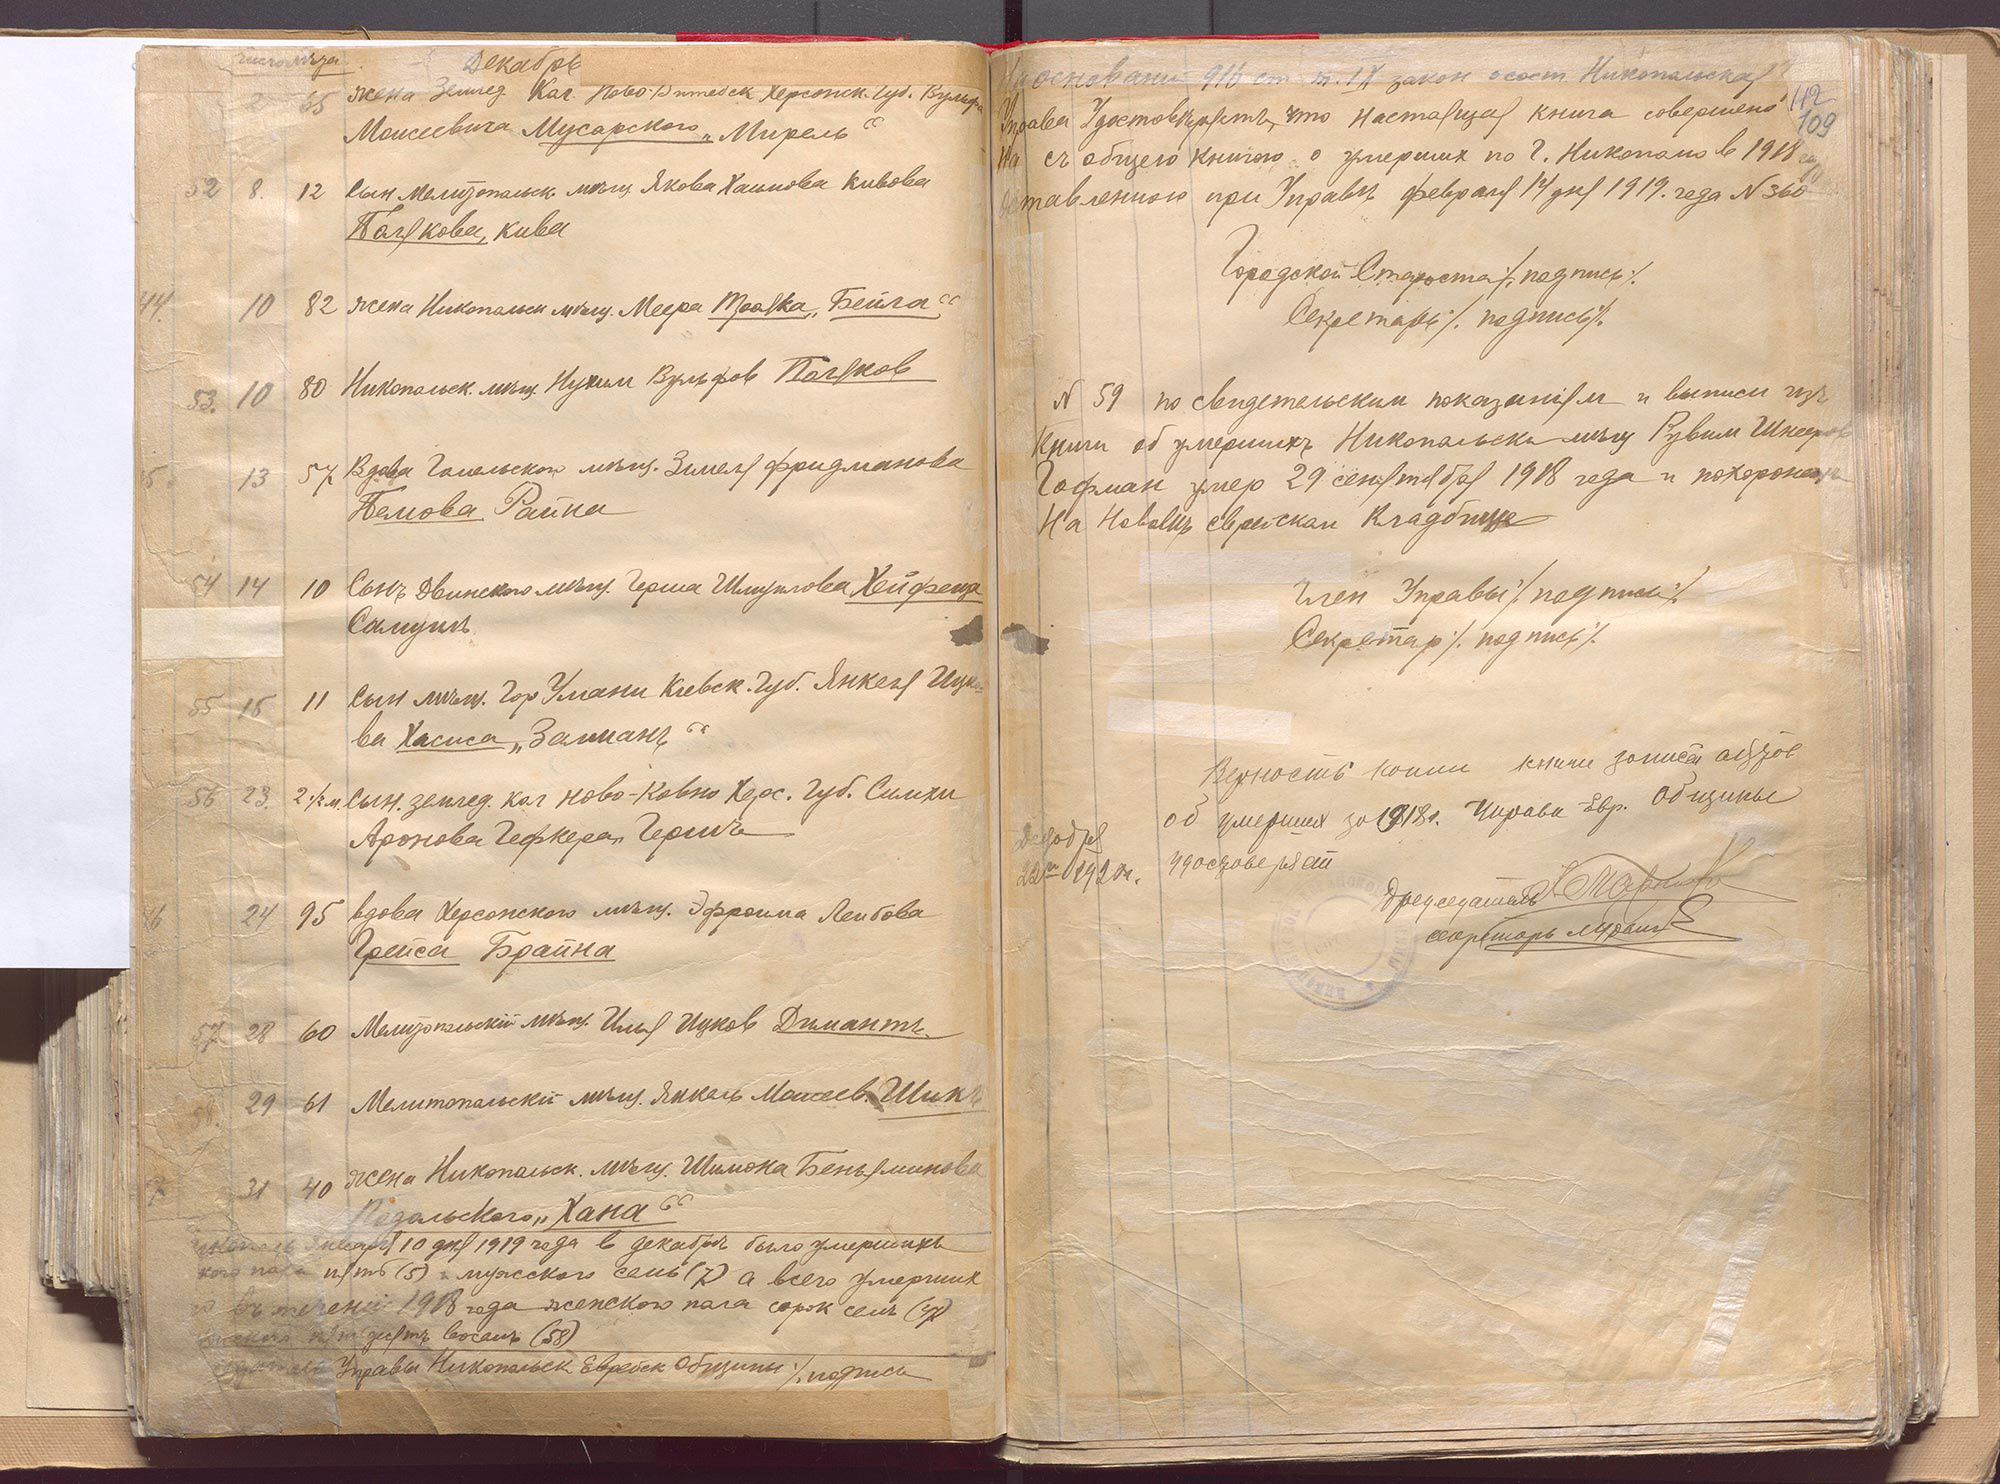 Декабрь
2 65 жена Землед. Кол. Ново-Витебск Херсонск. Губ. Вульфа
Моисеевича Мусарского „Мирель“
52 8. 12 Сын Мелитопольск. мѣщ. Якова Хаимова Кивова
Полякова, Кива
44. 10 82 жена Никопольск мѣщ. Меера „Бейла“
53. 10 80 Никопольск. мѣщ. Нухим Вульфов Поляков
13 57 Вдова Гомельского мѣщ. Зимеля Фридманова
Бемова Райна
54 14 10 Сынъ Двинского мѣщ. Герша Шмуилова Хейфеца
Самуилъ
55 15 11 Сын мѣщ. Гор Умани Киевск. Губ. Янкеля Ицко-
ва Хасиса „Залманъ“
56 23. 2 1/2 м. Сын. землед. кол Ново-Ковно Херс. Губ. Симхи
Аронова Гефтера „Гершъ
24 95 вдова Херсонского мѣщ. Эфроима Лейбова
Грейса Брайна
57. 28 60 Мелитопольскій мѣщ. Илья Ицков Димантъ
58. 29 61 Мелитопольскій мѣщ. Янкель Моисеев. Шикъ
31 40 жена Никопольск. мѣщ. Шимона Беньяминова
Подольского „Хана“
Января 10 дня 1919 года в декабрѣ было умершихъ
пола пять (5) мужского семь (7) а всего умерших
въ теченіи 1918 года женского пола сорок семь (47)
пятьдесятъ восемь (58)
Управы Никопольск Еврейск Общины /. подпись
основании 916 ст т. IX закон о сост Никопольская
112
Управа Удостовѣряетъ, что настоящая книга совершено
109
съ общею книгою о умерших по Г. Никополю в 1918
оставленною при Управѣ февраля 14 дня 1919. года N 360
Городской Староста /. подпись ./
Секретарь /. подпись /.
N 59 по свидетельским показаніям и выписи изъ
книги об умершихъ Никопольскй мѣщ Рувим Шнееров
Гофман умер 29 сентября 1918 года и похоронен
На Новомъ еврейском Кладбище
Член Управы /. подпись /.
Секретар /. подпись /.
Верность копии книги записей актов
об умерших за 1918 г. Управа Евр. Общины
Декабря
22го 1920 г. удостоверяет
Председатель
секретарь